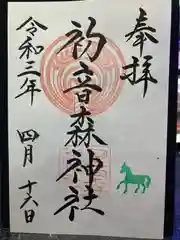 奉拝
初音森神社
令和三年
四月
十六日